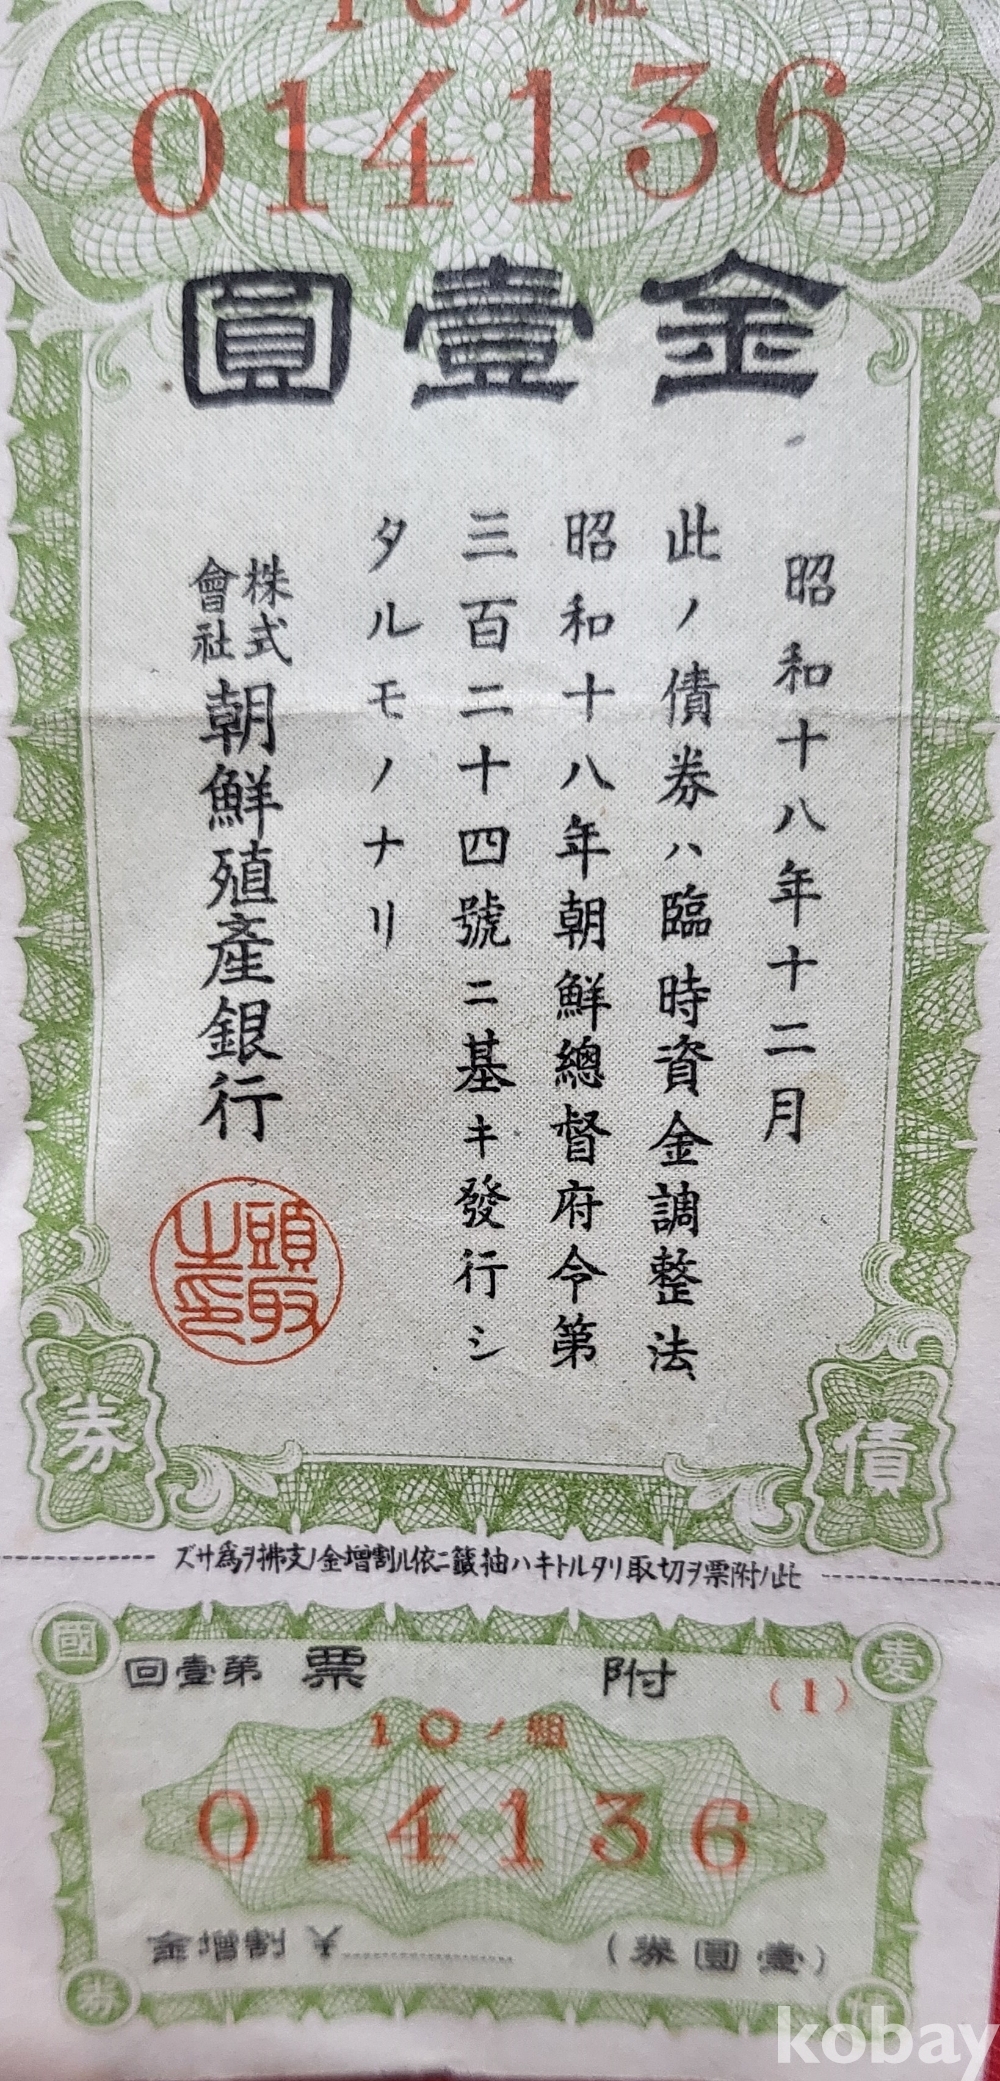 10ノ組
014136
金壹圓
昭和十八年十二月
此ノ債券ハ臨時資金調整法
昭和十八年朝鮮總督府令第
三百二十四號ニ基キ發行シ
タルモノナリ
株式會社朝鮮殖產銀行
頭取之印
債券
此ノ附票ヲ切取リタルトキハ抽籤ニ依ル割增金ノ支拂ヲ爲サズ
愛國
(1)
附票 第壹回
10ノ組
014136
(壹圓券)
割增金
債券
kobay